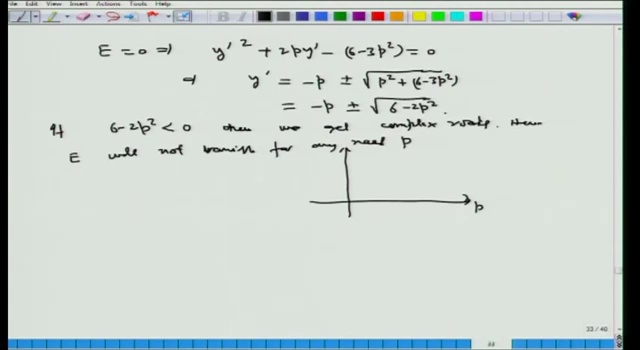 File Edit View Insert Actions Tools Help
E = 0 ⇒ y'² + 2py' - (6-3p²) = 0
⇒ y' = -p ± √(p² + (6-3p²))
= -p ± √(6-2p²).
If 6-2p² < 0 then we get complex roots. Hence
E will not vanish for any real p
p
33 / 40
33